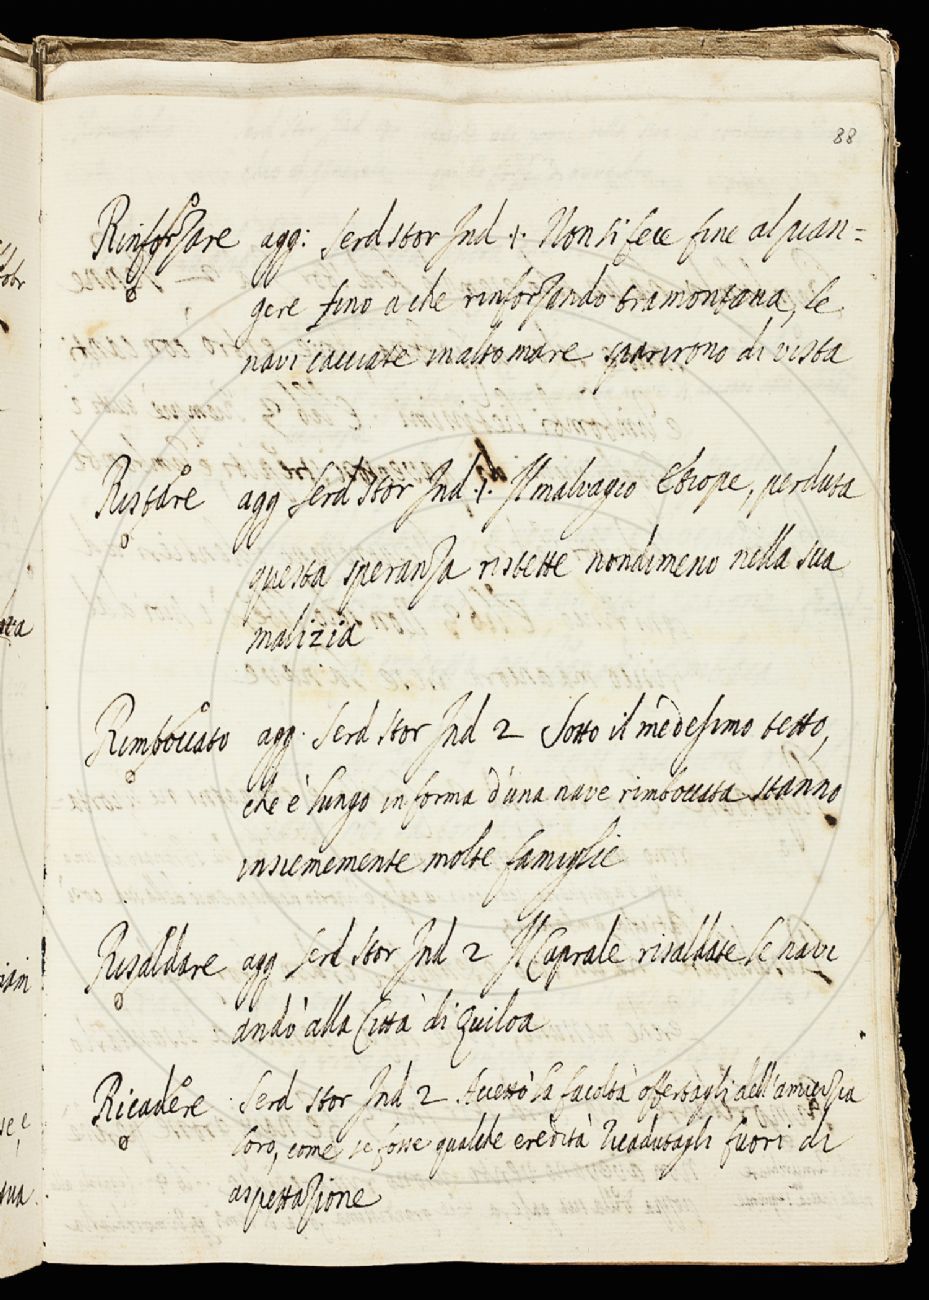 88
Rinforzare agg: Serd Stor Ind .1. Non si fece fine al pian=
gere fino a che rinforzando tramontana, le
navi cacciate in alto mare sparirono di vista
Ristare agg Serd Stor Ind .1. Il malvagio Etiope, perduta
questa speranza ristette nondimeno nella sua
malizia
Rimboccato agg. Serd Stor Ind 2 Sotto il medesimo tetto,
che è lungo in forma d'una nave rimboccata stanno
insiememente molte famiglie
Risaldare agg Serd Stor Ind 2 Il Caprale risaldate le navi
andò alla Città di Quiloa
Ricadere Serd Stor Ind 2 Accettò la facoltà offertagli dell'amicizia
loro, come se fosse qualche eredità ricadutagli fuori di
aspettazione